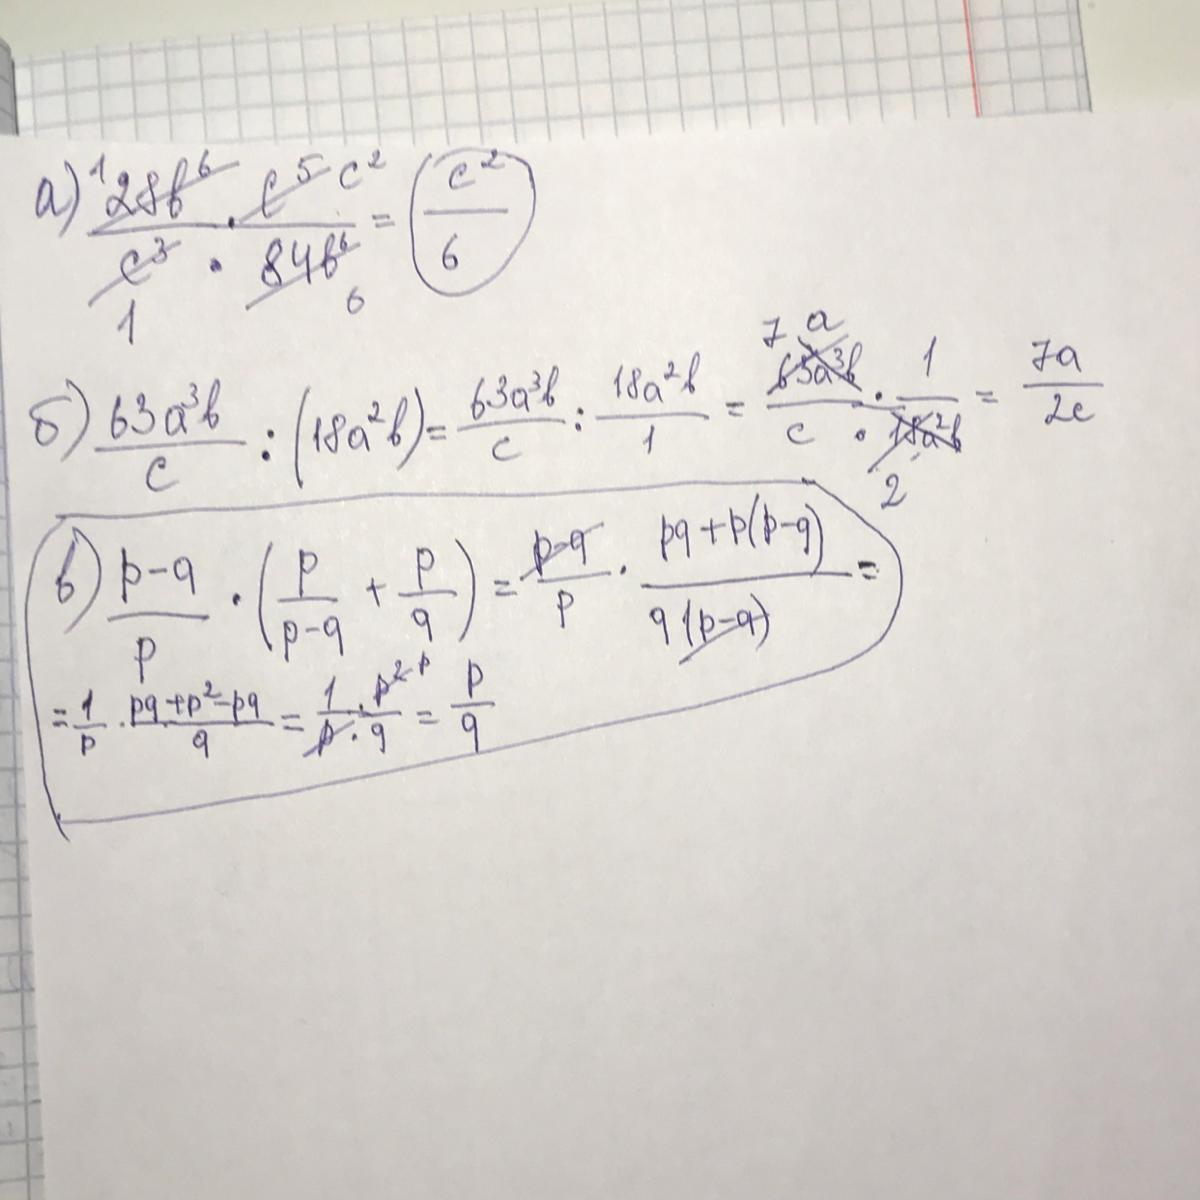 а) ¹28b⁶/c³ · c⁵ c²/84b⁶ = c²/6
1 6
7 a
б) 63a³b/c : (18a²b) = 63a³b/c : 18a²b/1 = 63a³b/c · 1/18a²b = 7a/2c
2
в) p-q/p · (p/p-q + p/q) = p-q/p · pq+p(p-q)/q(p-q) =
= 1/p · pq+p²-pq/q = 1/p · p² p/q = p/q